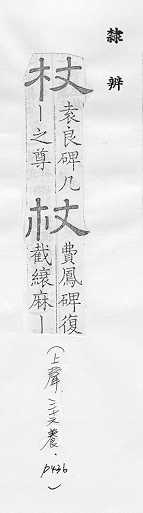 隸辨
杖袁良碑凡
丨之尊
杖費鳳碑復
截縗麻丨
(上聲.三十六養.
p436)